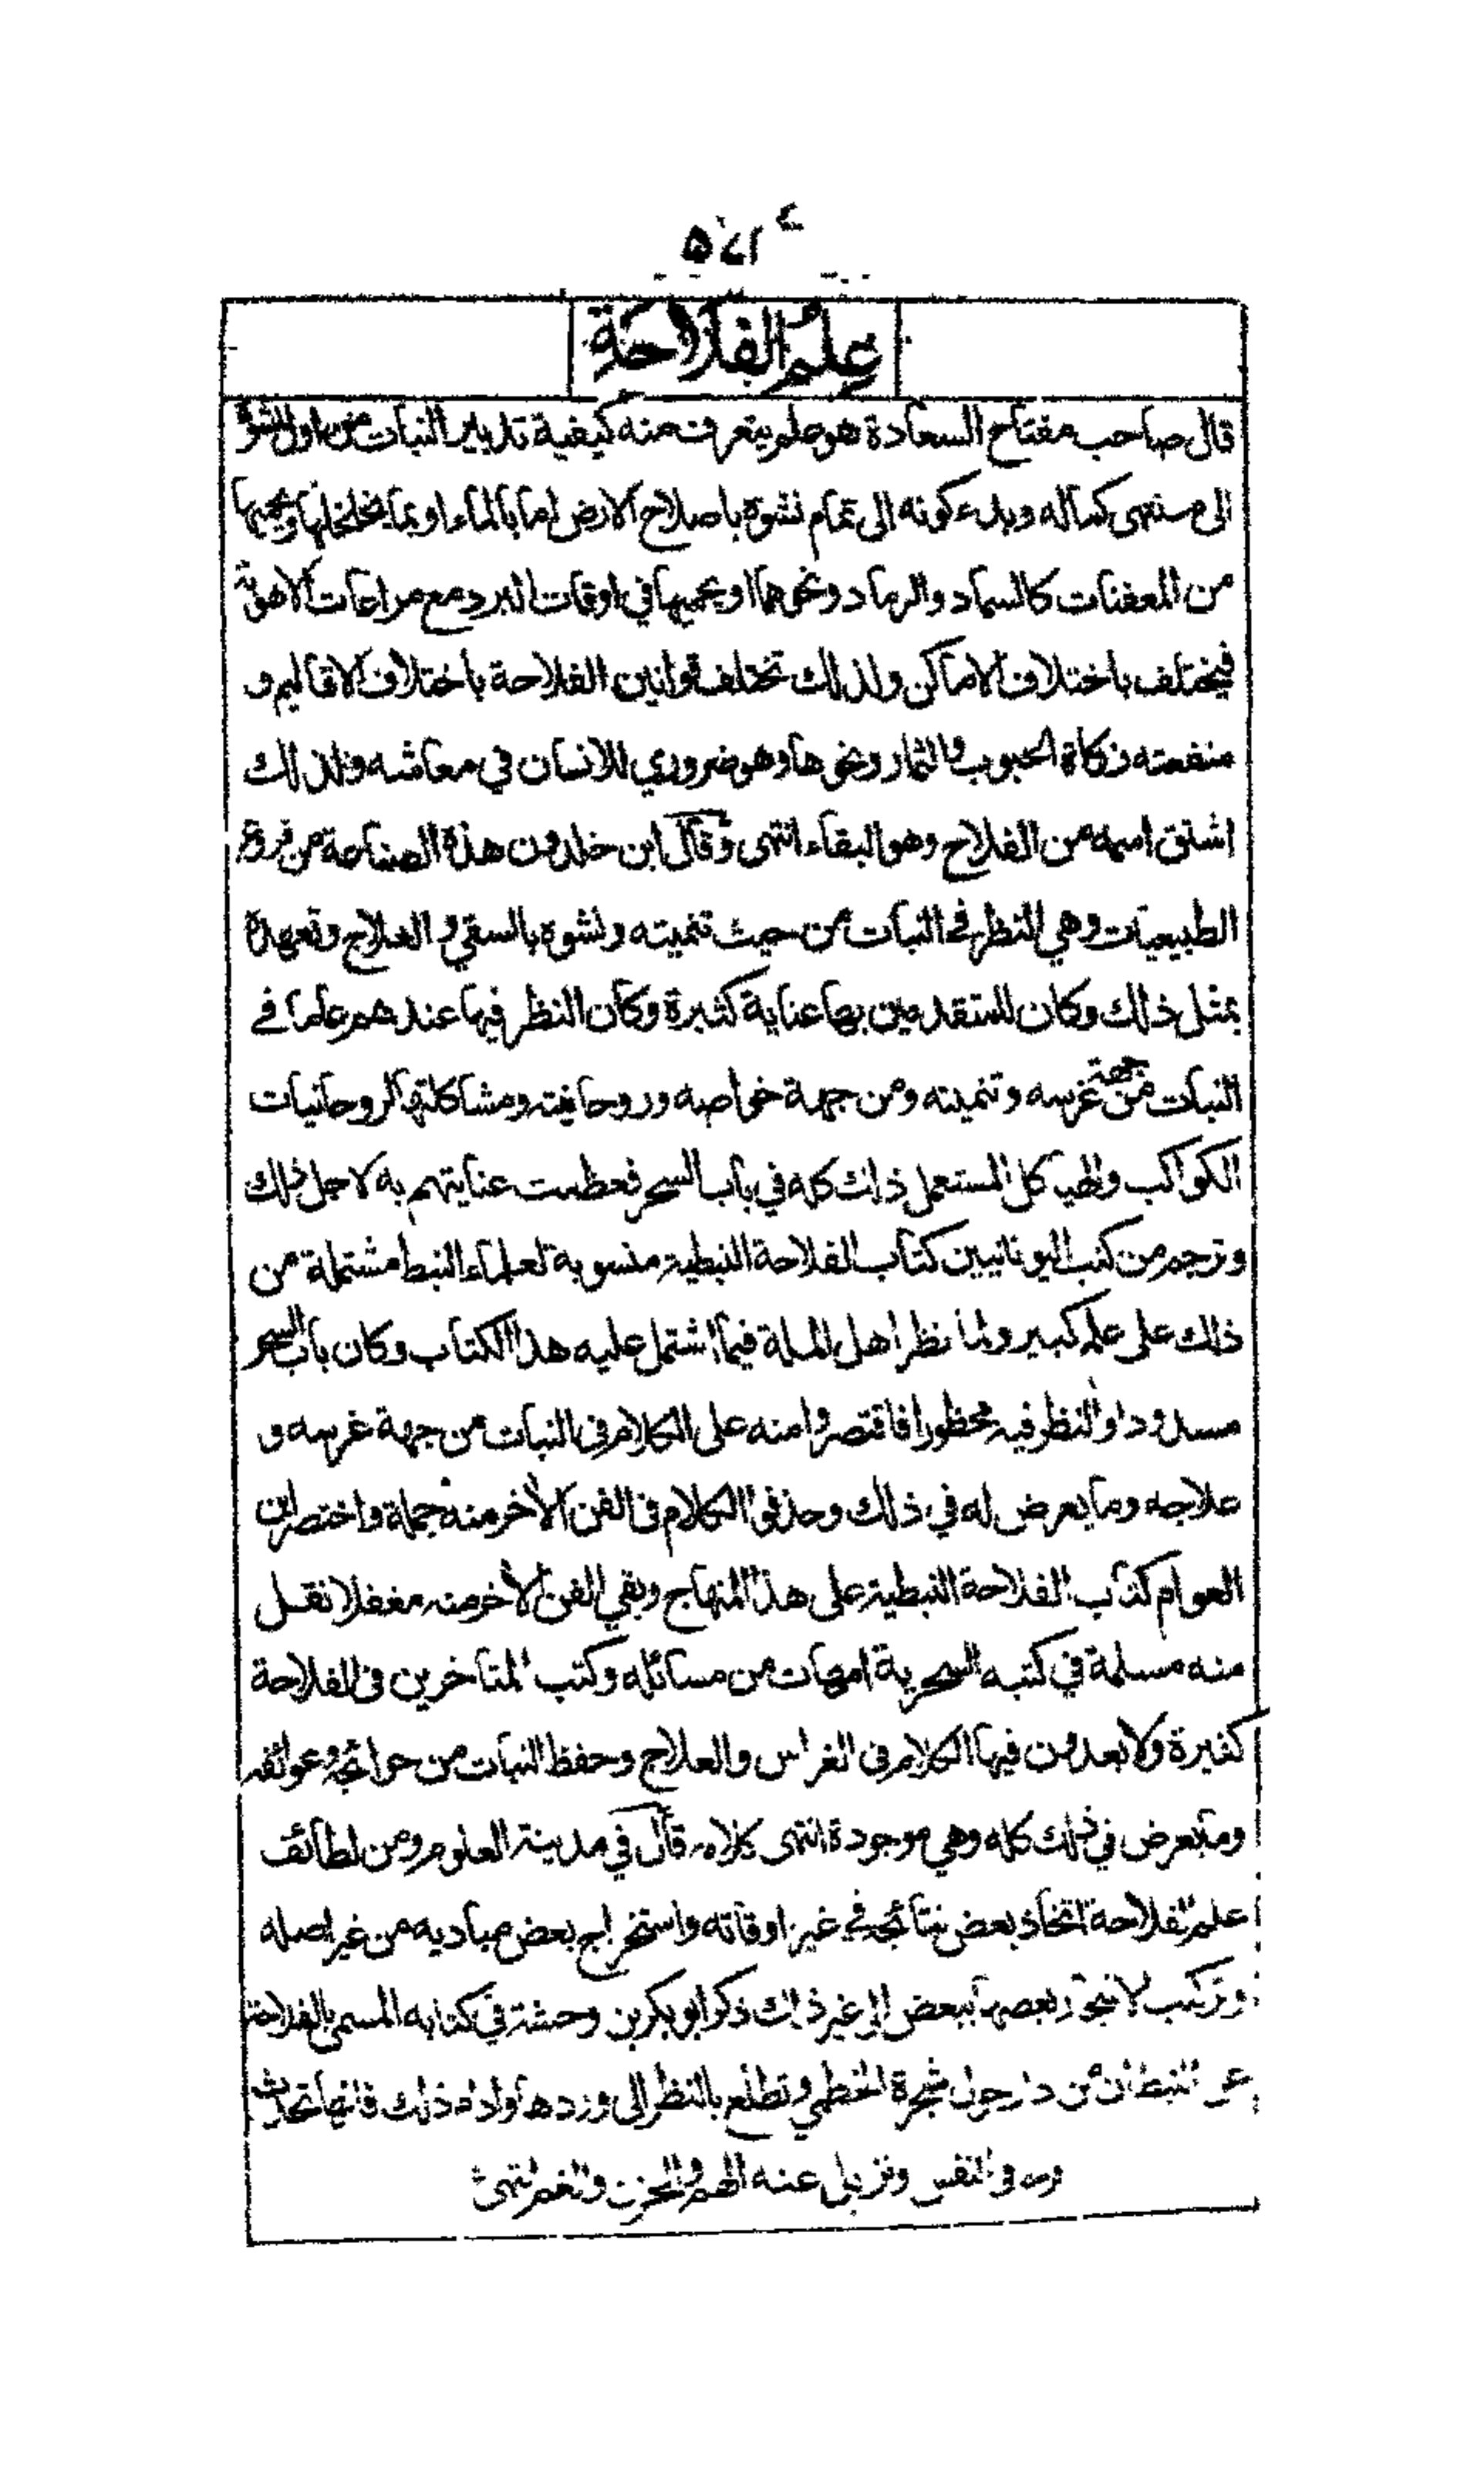 ٥٧٢
علم الفلاحة
قال صاحب مفتاح السعادة هو علم يتعرف منه كيفية تدبير النبات من اول نشوة
الى منتهى كماله وبدء كونه الى تمام نشوة باصلاح الارض اما بالماء او بما يخلخلها ويحميها
من المعفنات كالسماد والرماد ونحوهما او يحميها في اوقات البرد مع مراعات الاهوية
فيختلف باختلاف الاماكن ولذلك تختلف قوانين الفلاحة باختلاف الاقاليم و
منفعته زكاة الحبوب والثمار ونحوها وهو ضروري للانسان في معاشه ولذلك
اشتق اسمه من الفلاح وهو البقاء انتهى وقال ابن خلدون هذة الصناعة من فروع
الطبيعيات وهي النظر في النبات من حيث تنميته ونشوه بالسقي والعلاج وتعهدة
بمثل ذلك وكان للمتقدمين بها عناية كثيرة وكان النظر فيها عندهم عاما في
النبات من جهة غرسه وتنميته ومن جهة خواصه وروحانيته ومشاكلتها لروحانيات
الكواكب والهياكل المستعمل ذلك كله في باب السحر فعظمت عنايتهم به لاجل ذلك
وترجم من كتب اليونانيين كتاب الفلاحة النبطية منسوبة لعلماء النبط مشتملة من
ذلك على علم كبير ولما نظر اهل الملة فيما اشتمل عليه هذا الكتاب وكان باب السحر
مسدودا والنظر فيه محظورا فاقتصروا منه على الكلام في النبات من جهة غرسه و
علاجه وما يعرض له في ذلك وحذفوا الكلام في الفن الأخر منه جملة واختصر ابن
العوام كتاب الفلاحة النبطية على هذا المنهاج وبقي الفن الأخر منه مغفلا نقل
منه مسلمة في كتبه السحرية امهات من مسائله وكتب المتاخرين في الفلاحة
كثيرة ولا يعدون فيها الكلام في الغراس والعلاج وحفظ النبات من حوائجه وعوائقه
وما يعرض في ذلك كله وهي موجودة انتهى كلامه قال في مدينة العلوم ومن لطائف
علم الفلاحة اتخاذ بعض نتائجه في غير اوقاته واستخراج بعض مباديه من غير اصله
وتركيب الاشجار بعضها ببعض الى غير ذلك ذكر ابو بكر بن وحشة في كتابه المسمى بالفلاحة
عن النبط ان من دار حول شجرة الخطمي وتطلع بالنظر الى وردها وادام ذلك فانها تحدث
فرحا في النفس وتزيل عنه الهم والحزن والغم انتهى